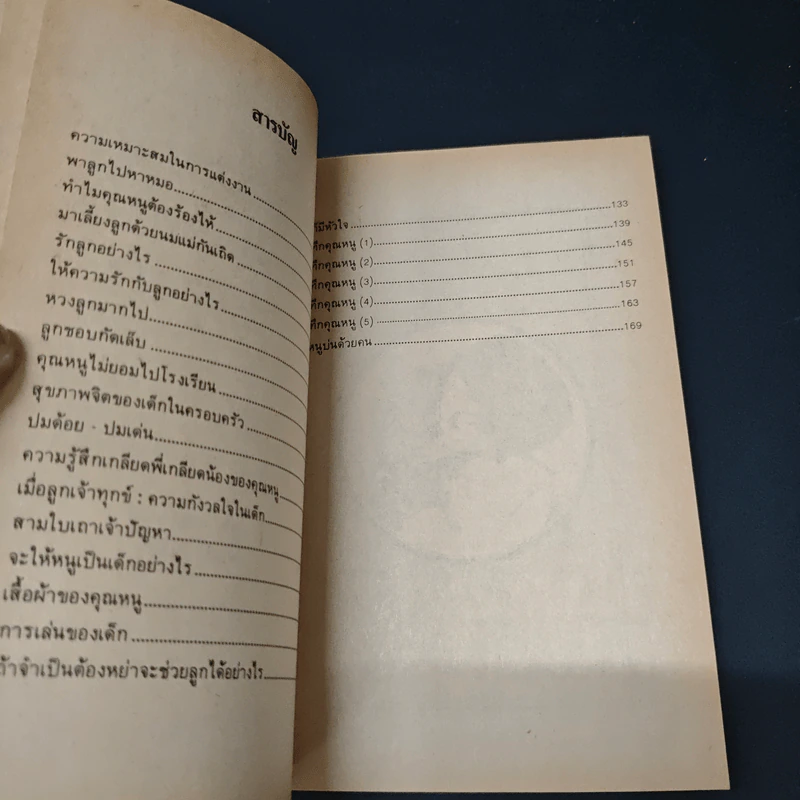 สารบัญ
ความเหมาะสมในการแต่งงาน
พาลูกไปหาหมอ
ทำไมคุณหนูต้องร้องไห้
มาเลี้ยงลูกด้วยนมแม่กันเถิด
รักลูกอย่างไร
ให้ความรักกับลูกอย่างไร
หวงลูกมากไป
ลูกชอบกัดเล็บ
คุณหนูไม่ยอมไปโรงเรียน
สุขภาพจิตของเด็กในครอบครัว
ปมด้อย - ปมเด่น
ความรู้สึกเกลียดพี่เกลียดน้องของคุณหนู
เมื่อลูกเจ้าทุกข์ : ความกังวลใจในเด็ก
สามใบเถาเจ้าปัญหา
จะให้หนูเป็นเด็กอย่างไร
เสื้อผ้าของคุณหนู
การเล่นของเด็ก
ถ้าจำเป็นต้องหย่าจะช่วยลูกได้อย่างไร
มีหัวใจ 133
คุณหนู (1) 139
คุณหนู (2) 145
คุณหนู (3) 151
คุณหนู (4) 157
คุณหนู (5) 163
หนูปนด้วยคน 169